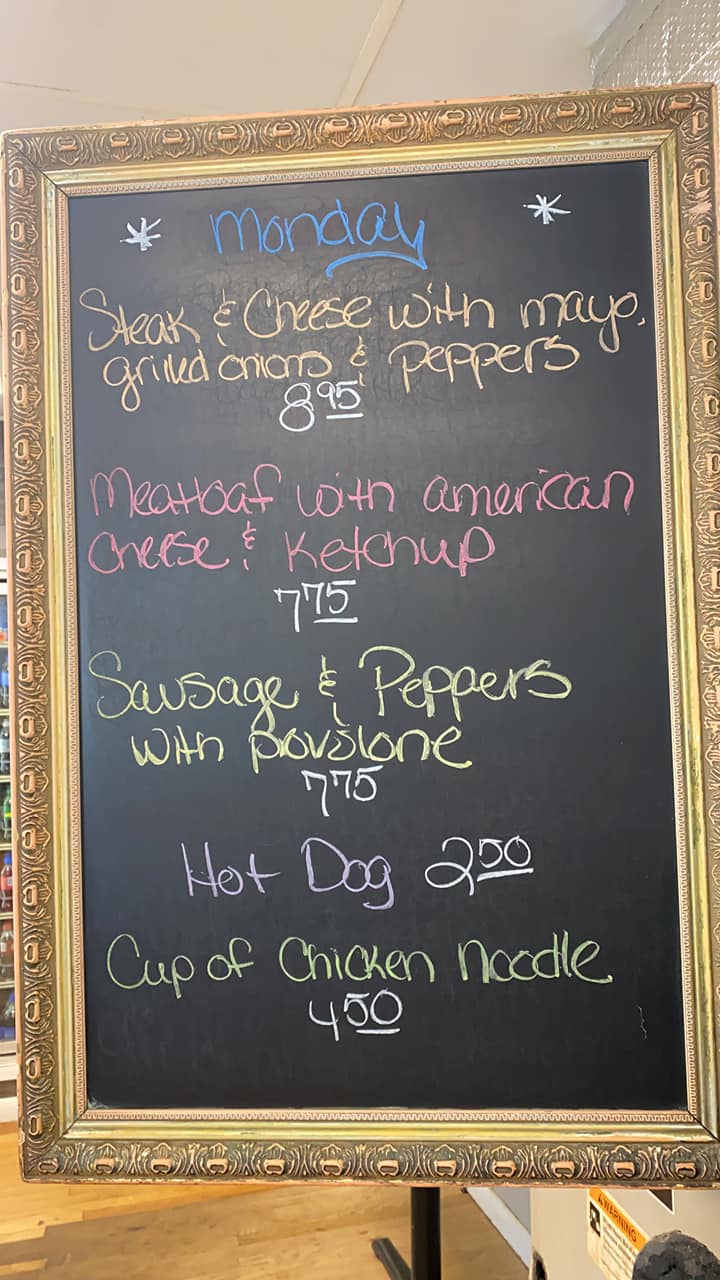 * Monday *
Steak & Cheese with mayo,
grilled onions & peppers
8.95
Meatloaf with american
Cheese & Ketchup
7.75
Sausage & Peppers
with provslone
7.75
Hot Dog 2.50
Cup of Chicken Noodle
4.50
WARNING